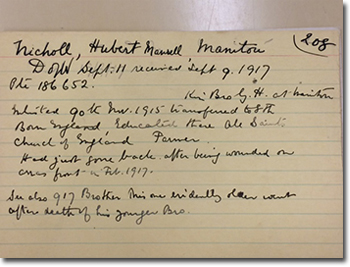 Nicholl, Hubert Maxwell Manitou 208
D of W Sept. 11 received Sept 9. 1917
Pte 186652.
Kin Bro G. H. at Manitou
Enlisted 90th Nov. 1915 transferred to 8th
Born England, Educated there All Saints
Church of England Farmer
Had just gone back after being wounded on
arras front in Feb. 1917.
See also 917 Brother This one evidently older went
after death of his younger Bro.